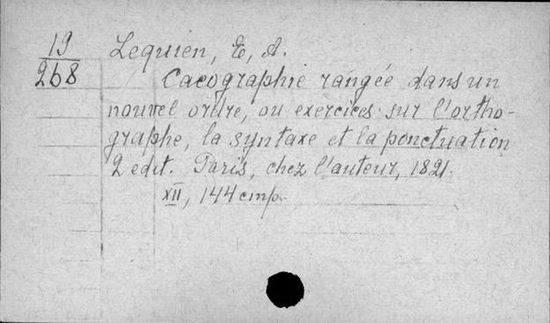 19 Lequien, E, A.
268 Cacographie rangée dans un
nouvel ordre, ou exercices sur l'ortho-
graphe, la syntaxe et la ponctuation
2 edit. Paris, chez l'auteur, 1821.
XII, 144 cmp.